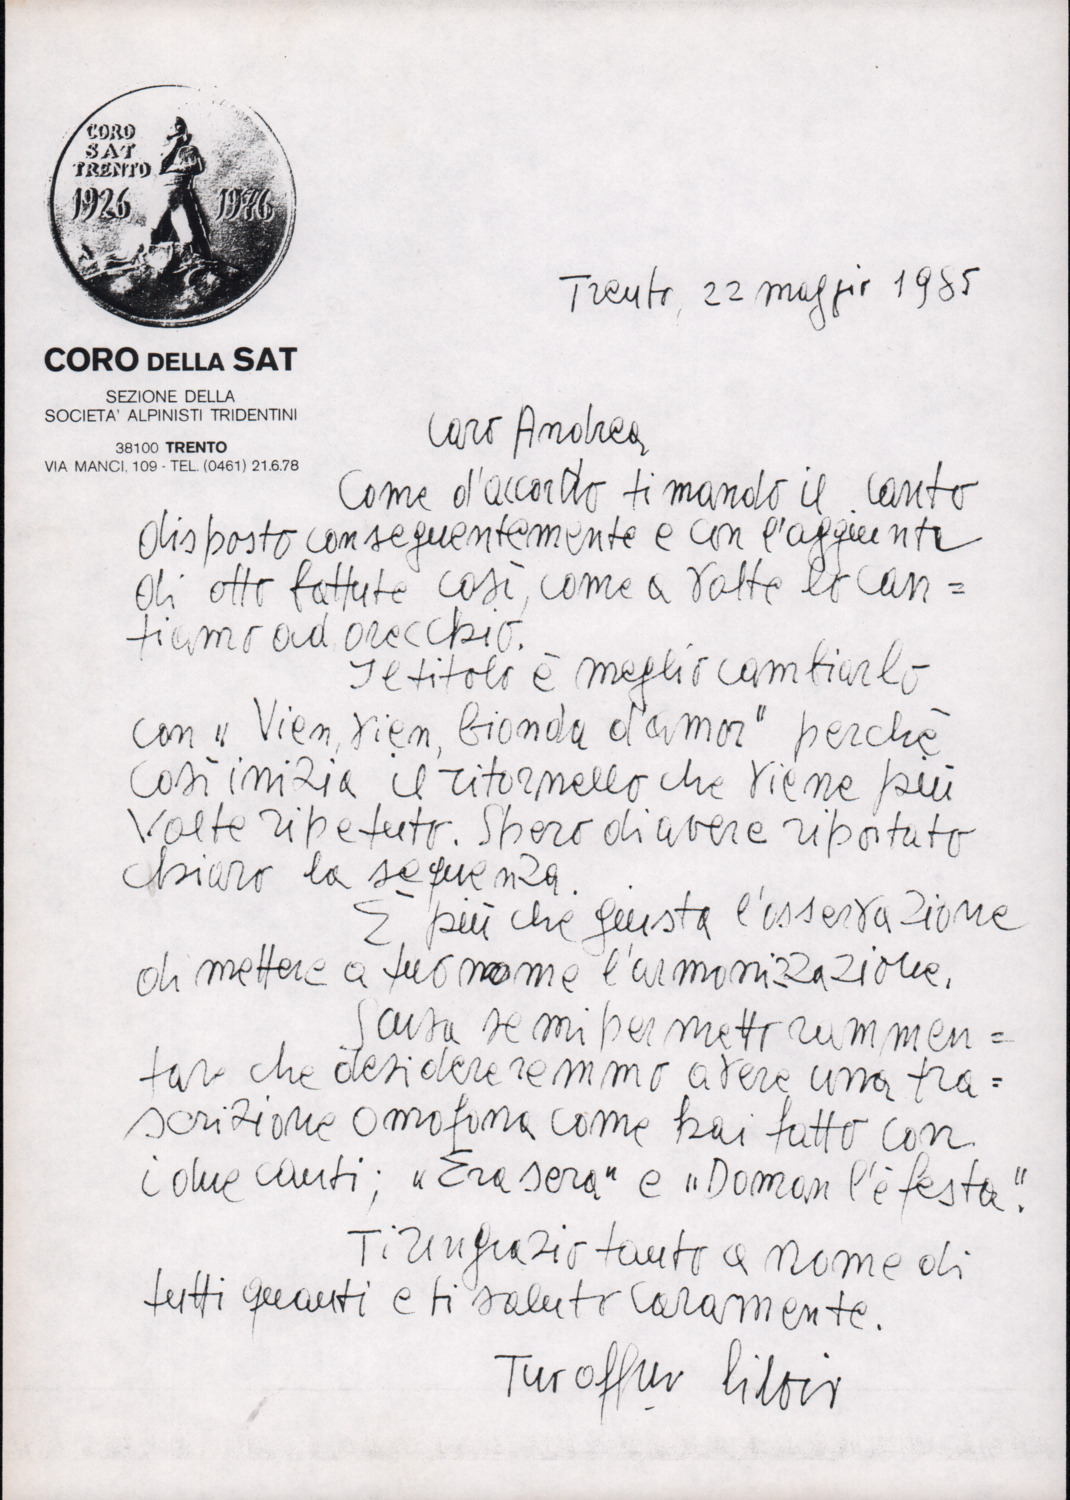 CORO
SAT
TRENTO
1926 1976
CORO DELLA SAT
SEZIONE DELLA
SOCIETA' ALPINISTI TRIDENTINI
38100 TRENTO
VIA MANCI, 109 - TEL. (0461) 21.6.78
Trento, 22 maggio 1985
Caro Andrea
Come d'accordo ti mando il canto
disposto conseguentemente e con l'aggiunta
di otto battute così, come a volte lo can=
tiamo ad orecchio.
Il titolo è meglio cambiarlo
con "Vien, vien, bionda d'amor" perchè
così inizia il ritornello che viene più
volte ripetuto. Spero di avere riportato
chiaro la sequenza.
È più che giusta l'osservazione
di mettere a tuo nome l'armonizzazione.
Scusa se mi permetto rammen=
tare che desidereremmo avere una tra=
scrizione omofona come hai fatto con
i due canti; "Era sera" e "Doman l'è festa".
Ti ringrazio tanto a nome di
tutti quanti e ti saluto caramente.
Silvio